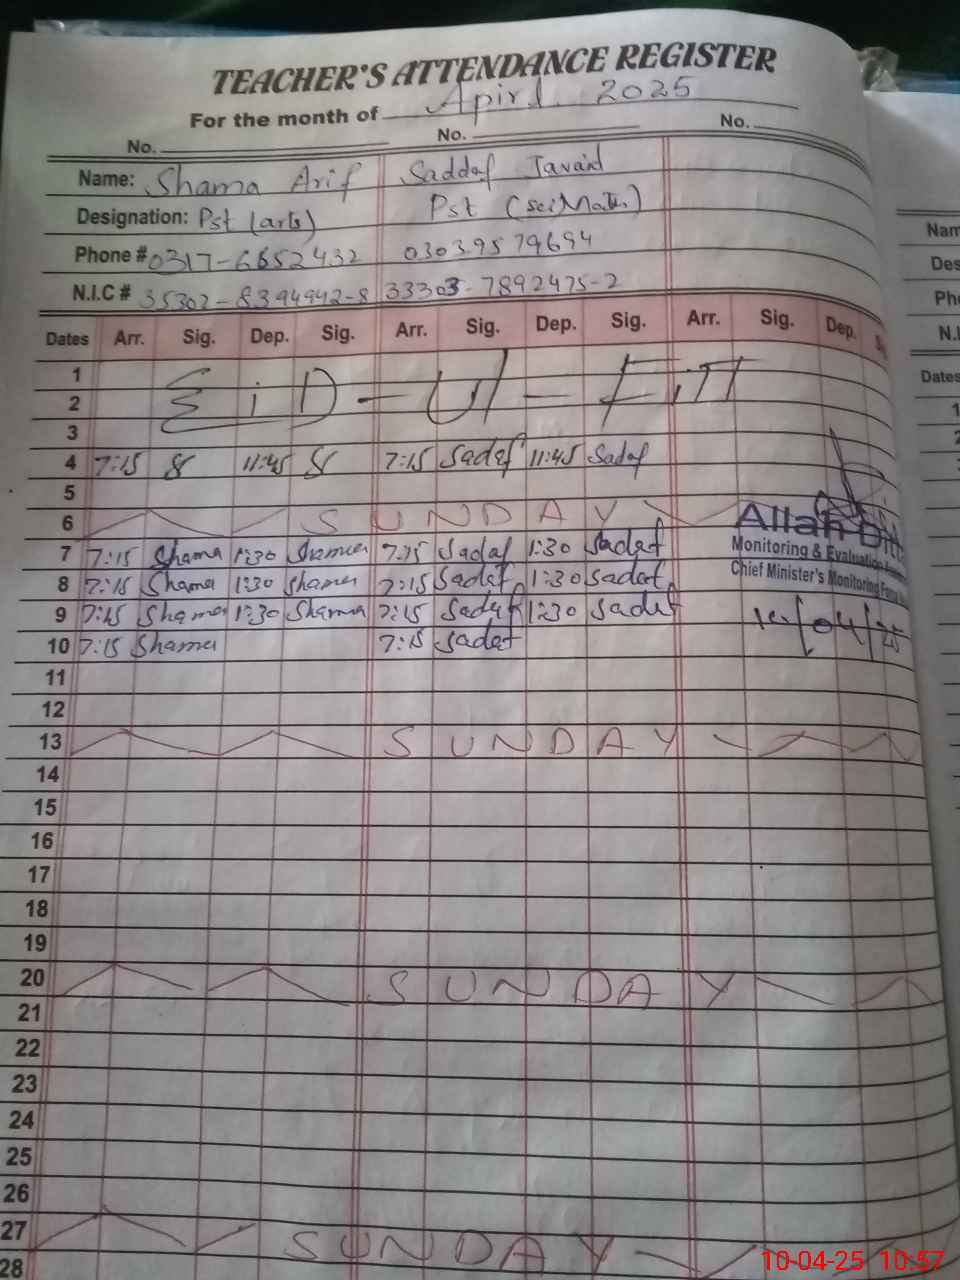 TEACHER'S ATTENDANCE REGISTER
For the month of Apirl. 2025
No. No. No.
Name: Shama Arif Saddaf Javaid
Designation: Pst (arts) Pst (sci Math)
Phone # 0317-6652432 0303.9579694
N.I.C # 35302-8394942-8 33303-7892475-2
Dates Arr. Sig. Dep. Sig. Arr. Sig. Dep. Sig. Arr. Sig. Dep.
1
2 EiD - Ul - FiT
3
4 7:15 S 11:45 S 7:15 Sadaf 11:45 Sadaf
5
6 SUNDAY
7 7:15 Shama 1:30 Shama 7:15 Sadaf 1:30 Sadaf
8 7:15 Shama 1:30 Shama 7:15 Sadaf 1:30 Sadaf
9 7:15 Shama 1:30 Shama 7:15 Sadaf 1:30 Sadaf
10 7:15 Shama 7:15 Sadaf
Allah Ditt
Monitoring & Evaluation
Chief Minister's Monitoring
10/04/25
11
12
13 SUNDAY
14
15
16
17
18
19
20 SUNDAY
21
22
23
24
25
26
27 SUNDAY
28
Nam
Des
Pho
N.I
Dates
1
2
10-04-25 10:57